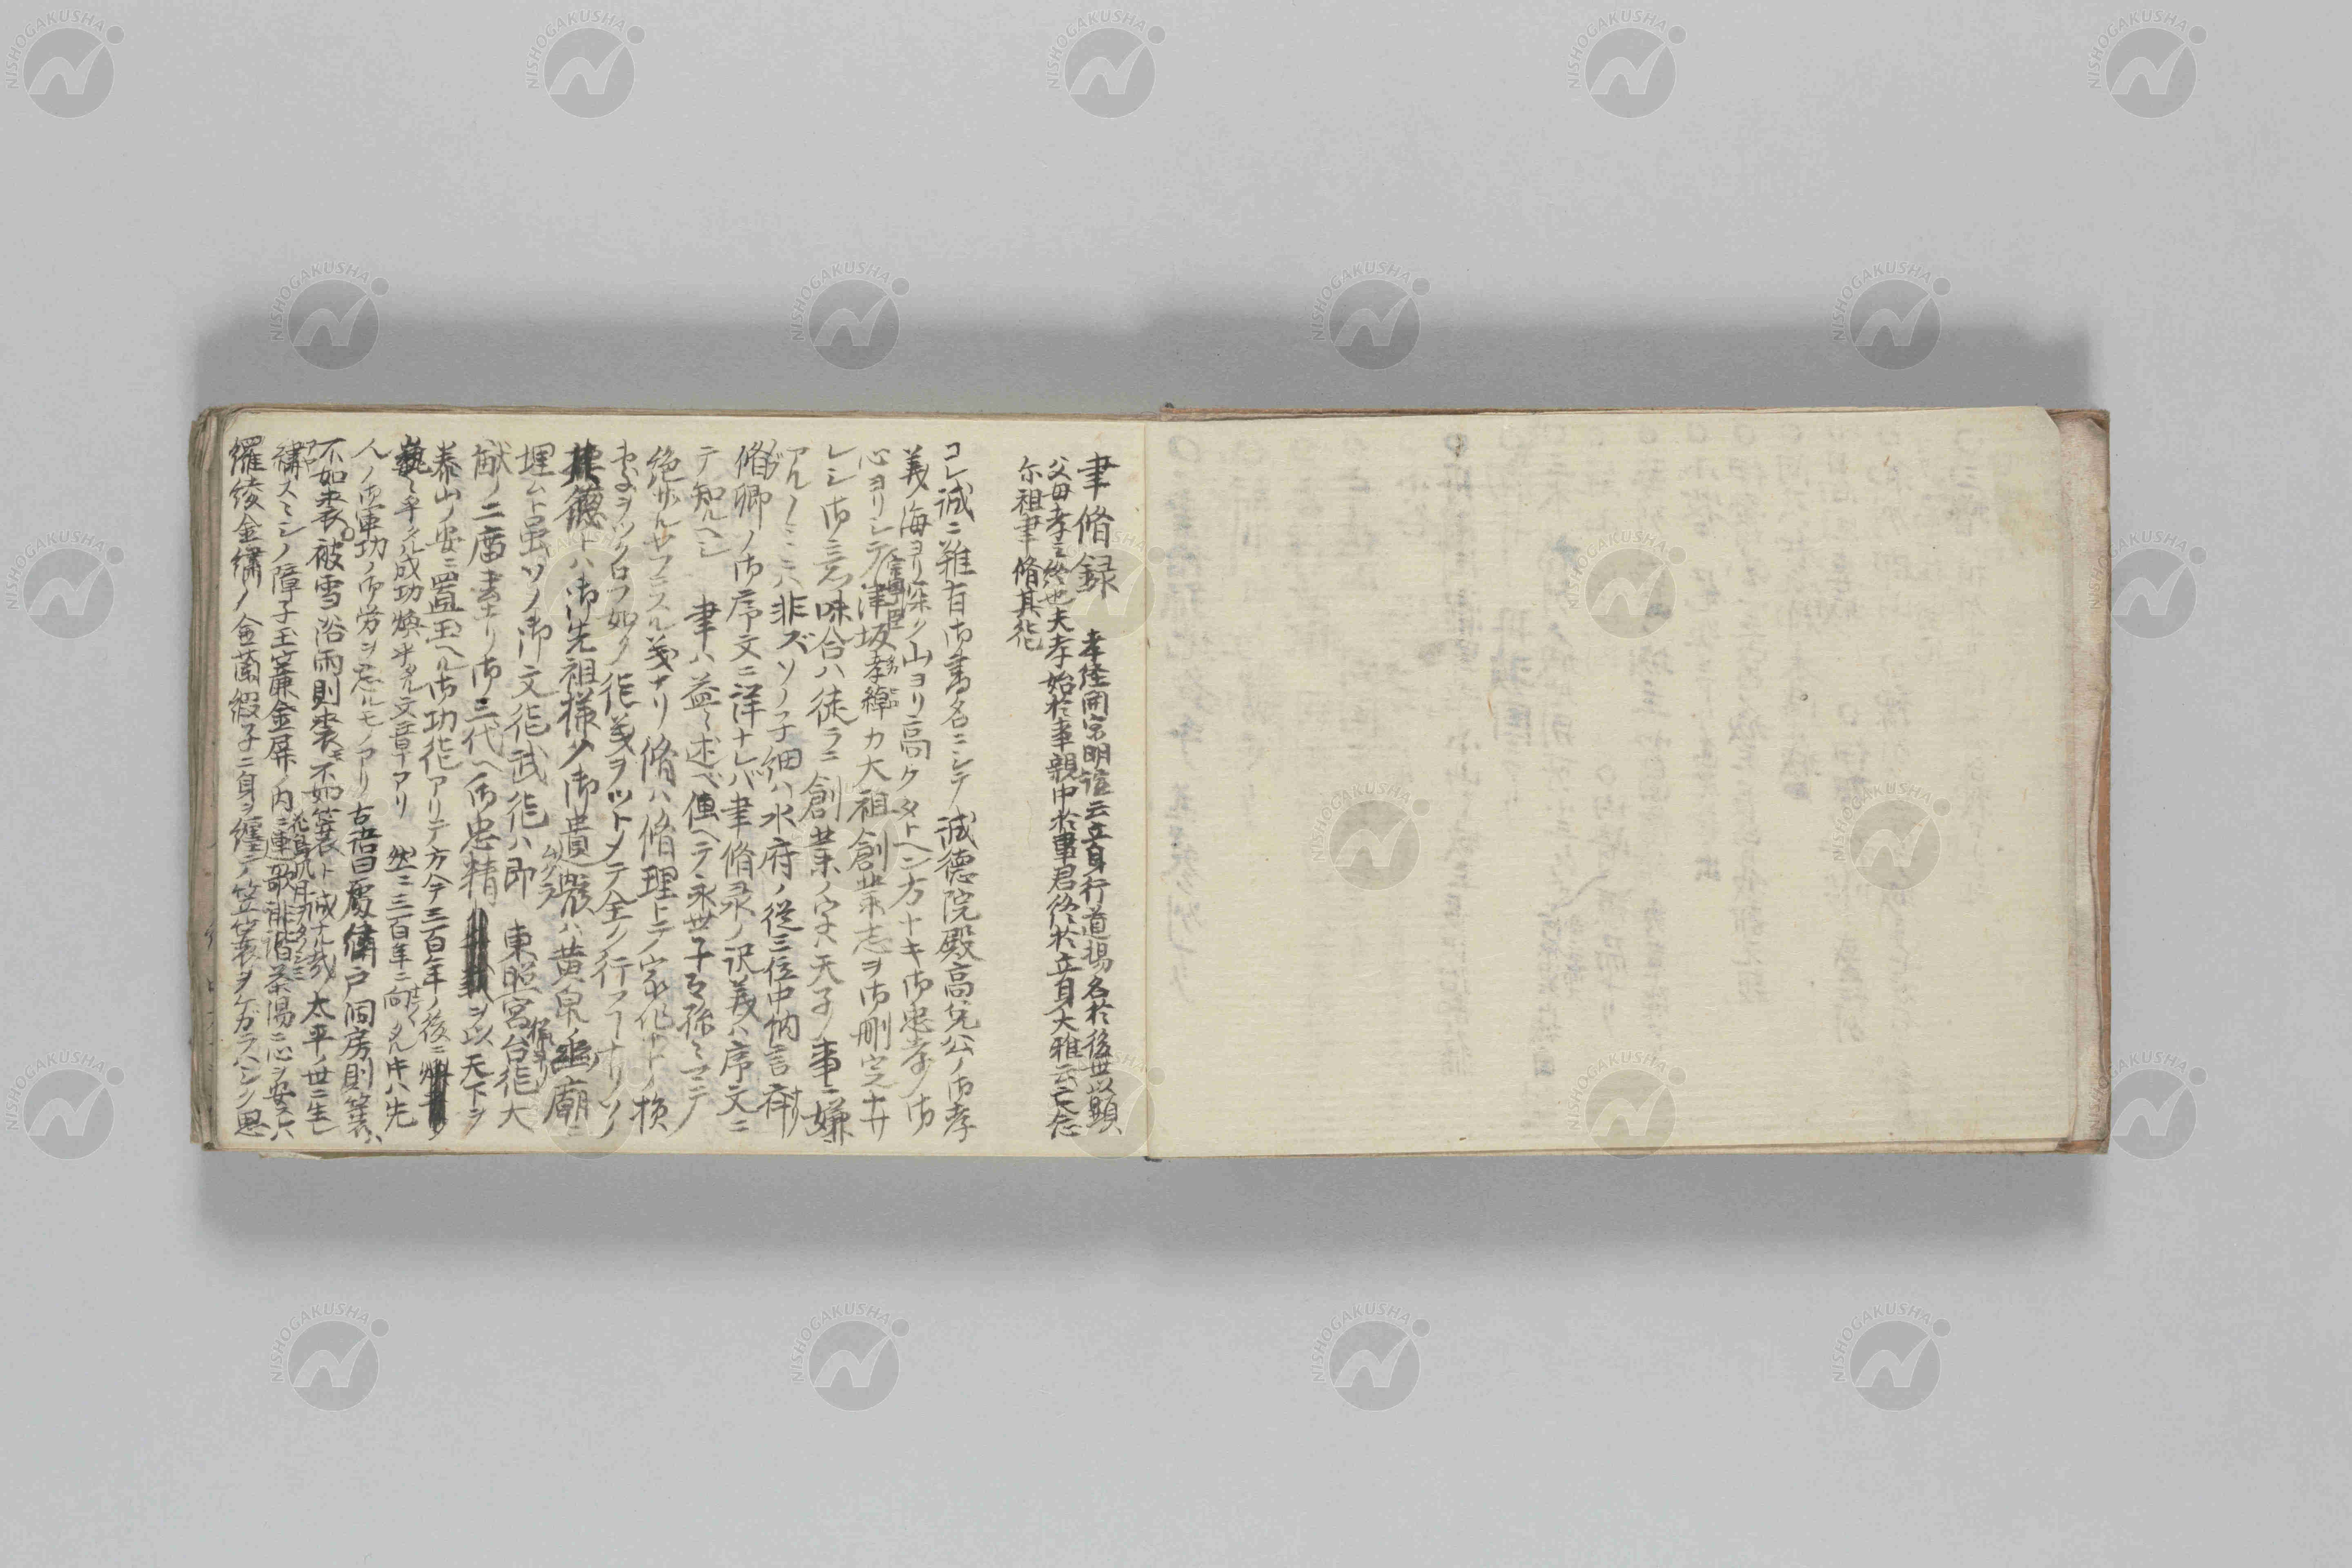 聿脩録 孝経開宗明誼云立身行道揚名於後世以顕
父母孝之終也夫孝始於事親中於事君終於立身大雅云亡念
尓祖聿脩其徳
コレ誠ニ難有御書名ニシテ誠徳院殿高兌公ノ御孝
義ノ海ヨリ深ク山ヨリ高クタトヘン方ナキ御忠孝ノ御
心ヨリシテ津坂孝綽カ大祖創業志ヲ御刪定ナサ
レシ御意味合ハ徒ラニ創業ノ字ハ天子ノ事ニ嫌
アルノミニハ非ズソノ子細ハ水府ノ従三位中納言
脩卿ノ御序文ニ詳ナレバ聿脩录ノ訳義ハ序文ニ
テ知ルヘシ 聿ハ益〻述ベ傳ヘテ永世子〻孫〻マデ
絶サルヤフニスル義ナリ脩ハ脩理トテ家化ナトノ損
セシヲツクロフ如ク徳義ヲツトメテ全ク行フナリソノ
其徳トハ御先祖様ノ御遺 ハ黄泉ノ幽廟ニ
埋ムト虽ソノ御文徳武徳ハ即 東照宮台徳大
猷ノ二 ナリ御三代ヘ御忠精 ヲ以天下ヲ
泰山ノ安ニ置玉ヘル御功徳アリテ方今三百年ノ後ニ
巍〻乎タル成功煥乎タル文章アリ 然ニ三百年ニ向タル中ハ先
人ノ御軍功ノ御労ヲ忘ルモノアリ 古語曰處繍戸洞房則簑
不如裘被雪浴雨則裘不如簑ト誠ナル哉太平ノ世ニ生レ
障子玉簾金屏ノ内ニ連歌誹諧茶湯ニ心ヲ安ス
花鳥風月
羅綾金繍ノ金蘭緞子ニ身ヲ纏ヒテ笠簑ヲ ケガラハシク思
NISHOGAKUSHA